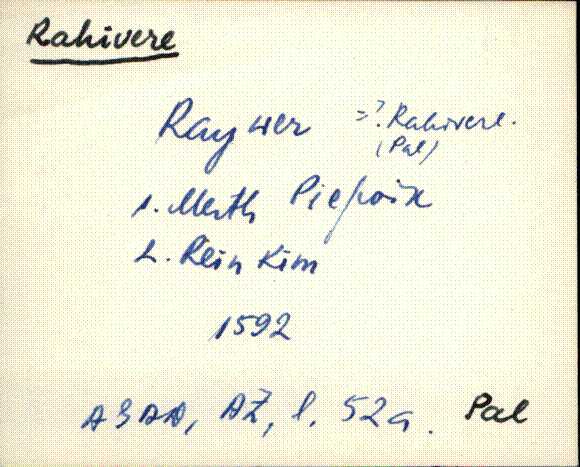 Rahivere
Raywer =? Rahivere.
(Pal)
1. Merth Piepoix
2. Rein Kim
1592
AGAD, AŻ, l. 52a. Pal